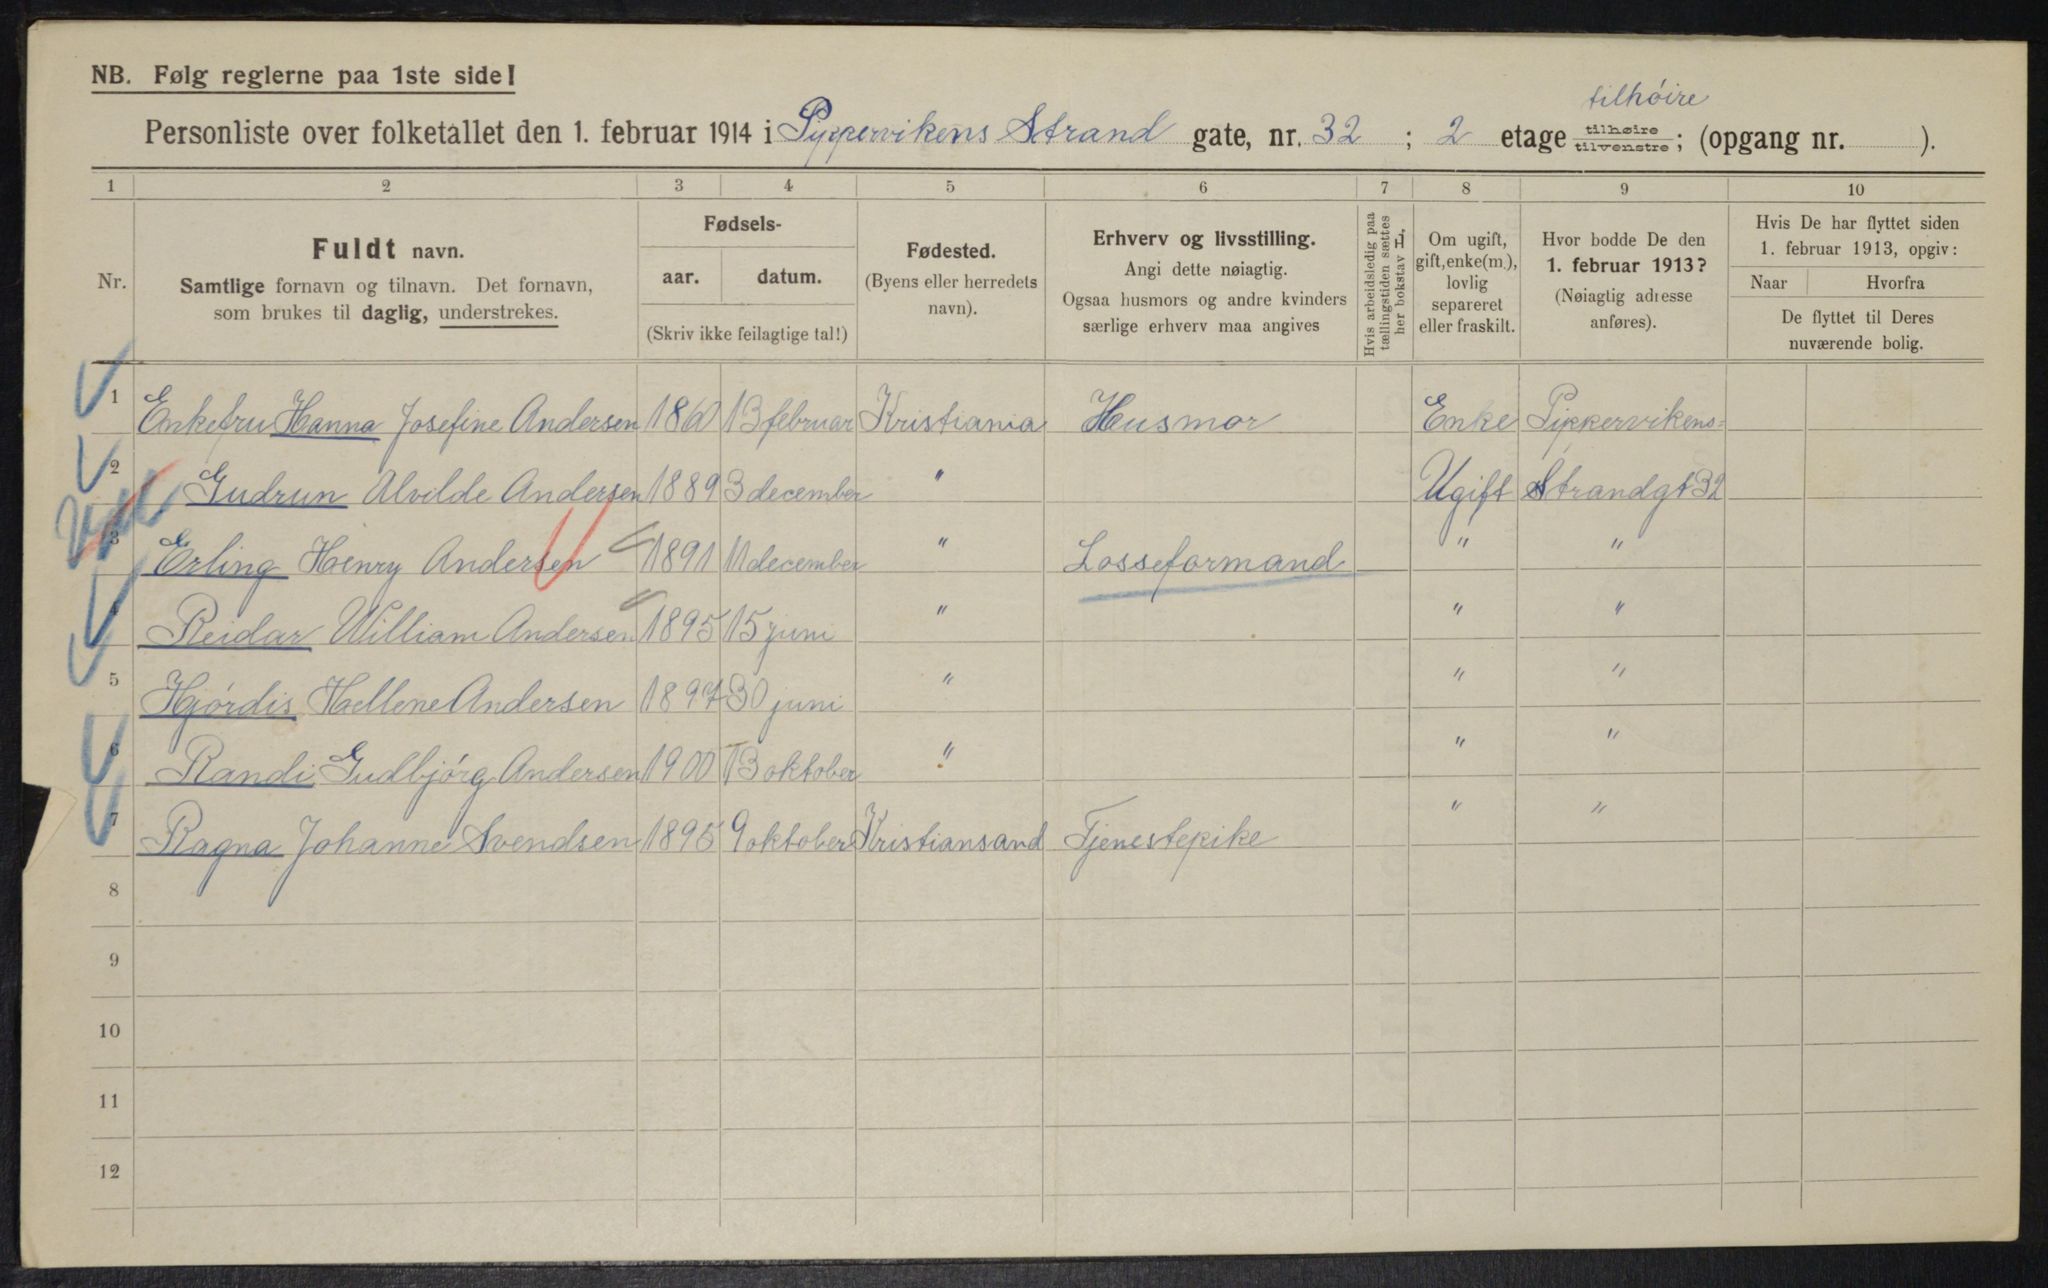 NB. Følg reglerne paa 1ste side!
tilhöire
Personliste over folketallet den 1. februar 1914 i Pippervikens Strand gate, nr. 32 ; 2 etage tilhøire tilvenstre ; (opgang nr. ).
1 2 3 4 5 6 7 8 9 10
Nr.
Fuldt navn.
Samtlige fornavn og tilnavn. Det fornavn,
som brukes til daglig, understrekes.
Fødsels-
aar. datum.
(Skriv ikke feilagtige tal!)
Fødested.
(Byens eller herredets
navn).
Erhverv og livsstilling.
Angi dette nøiagtig.
Ogsaa husmors og andre kvinders
særlige erhverv maa angives
Hvis arbeidsledig paa
tællingstiden sættes
her bokstav H.
Om ugift,
gift, enke(m.),
lovlig
separeret
eller fraskilt.
Hvor bodde De den
1. februar 1913?
(Nøiagtig adresse
anføres).
Hvis De har flyttet siden
1. februar 1913, opgiv:
Naar Hvorfra
De flyttet til Deres
nuværende bolig.
1 Enkefru Hanna Josefine Andersen 1860 13 februar Kristiania Husmor Enke Pippervikens-
2 Gudrun Alvilde Andersen 1889 3 december " Ugift Strandgt 32
3 Erling Henry Andersen 1891 11 december " Losseformand " "
4 Reidar William Andersen 1895 15 juni " " "
5 Hjördis Hellene Andersen 1897 30 juni " " "
6 Randi Gudbjörg Andersen 1900 13 oktober " " "
7 Ragna Johanne Svendsen 1895 9 oktober Kristiansand Tjenestepike " "
8
9
10
11
12